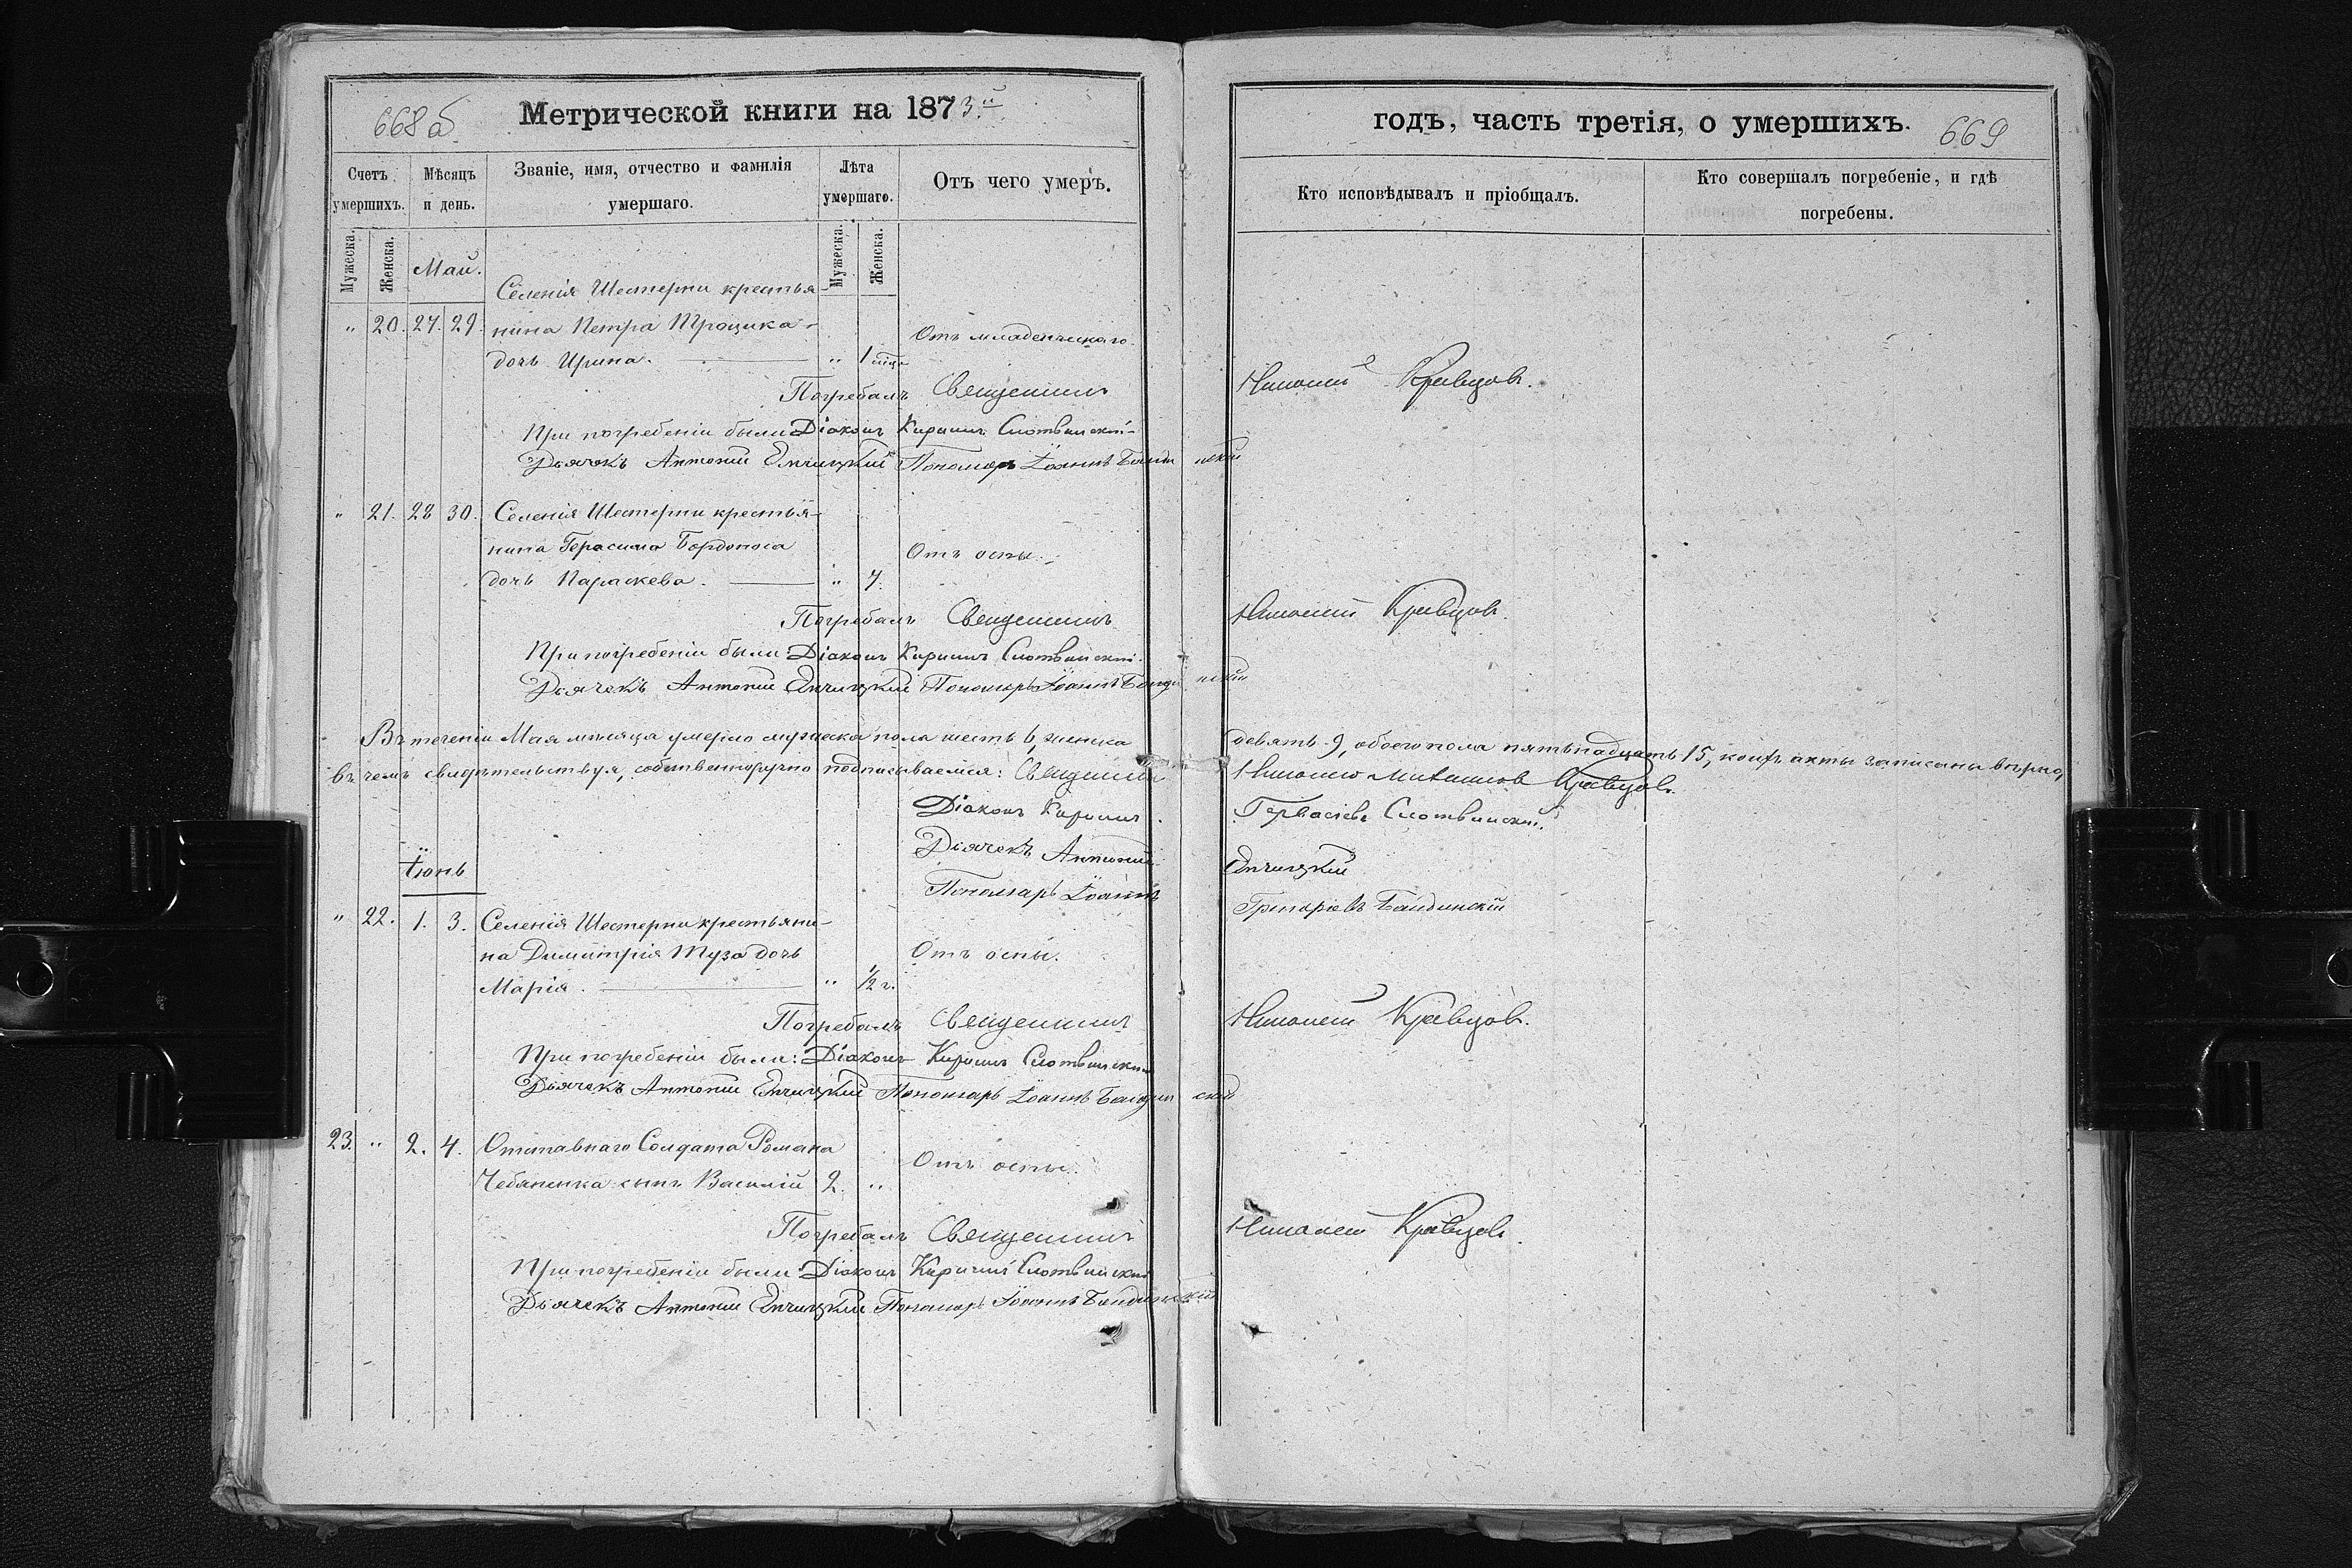 668б
Метрической книги на 1873й
Счетъ умершихъ.
Мѣсяцъ и день.
Званіе, имя, отчество и фамилія умершаго.
Лѣта умершаго.
Отъ чего умеръ.
Мужеска.
Женска.
Мужеска.
Женска.
Май.
Селенія Шестерни крестья-
" 20. 27. 29. нина Петра Троцика-
дочь Ирина. " 1 мца
Отъ младенческаго.
Погребалъ Священникъ
При погребеніи были Діаконъ Кириллъ Слотвинскій
Дьячекъ Антоній Пономарь Іоаннъ Бандинскій
" 21. 28 30. Селенія Шестерни крестья-
нина Герасима Бордоноса
Отъ оспы.
дочь Параскева. " 7.
Погребалъ Священникъ
При погребеніи были Діаконъ Кириллъ Слотвинскій.
Дьячекъ Антоній Пономарь Іоаннъ Бандинскій
Въ теченіи Мая мѣсяца умерло мужеска пола шесть 6, женска
въ чемъ свидѣтельствуя, собственноручно подписываемся: Священникъ
Діаконъ Кириллъ
Дьячекъ Антоній
Пономарь Іоаннъ
Іюнь
" 22. 1. 3. Селенія Шестерни крестьяни-
на Димитрія Туза дочь
Отъ оспы.
Марія. " 1/2 г.
Погребалъ Священникъ
При погребеніи были: Діаконъ Кириллъ Слотвинскій
Дьячекъ Антоній Пономарь Іоаннъ Бандинскій
23. " 2. 4. Отставнаго Солдата Романа
Отъ оспы.
Чебаненка сынъ Василій 2. "
Погребалъ Священникъ
При погребеніи были Діаконъ Кириллъ Слотвинскій
Дьячекъ Антоній Пономарь Іоаннъ Бандинскій
годъ, часть третія, о умершихъ.
669
Кто исповѣдывалъ и пріобщалъ.
Кто совершалъ погребеніе, и гдѣ погребены.
Николай Кравцовъ.
Николай Кравцовъ.
девять 9, обоего пола пятьнадцать 15, коихъ акты записаны вѣрно,
Николай Кравцовъ.
Гервасіевъ Слотвинскій.
Григоріевъ Бандинскій
Николай Кравцовъ.
Николай Кравцовъ.